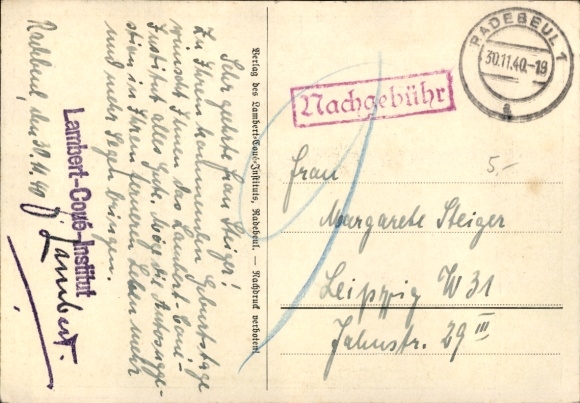 Sehr geehrte Frau Steiger!
Zu Ihrem kommenden Geburtstage
wünscht Ihnen das Lambert-Coué-
Institut alles Gute. Möge die Autosugge-
stion in Ihrem ferneren Leben mehr
und mehr Segen bringen.
Radebeul, den 30.11.40
Lambert-Coué-Institut
J. Lambert.
Verlag des Lambert-Coué-Instituts, Radebeul. — Nachdruck verboten!
Nachgebühr
RADEBEUL 1
30.11.40.-19
a
9
5.-
Frau
Margarete Steiger
Leipzig W 31
Jahnstr. 29 III